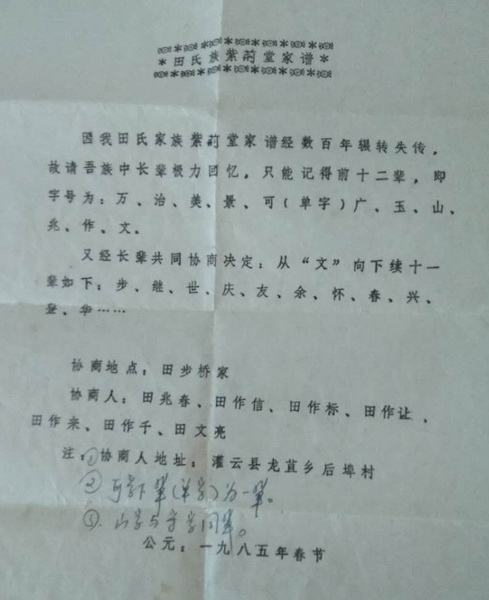 *田氏族紫荊堂家谱*
因我田氏家族紫荊堂家谱经数百年辗转失传，
故请吾族中长辈极力回忆，只能记得前十二辈，即
字号为：万、治、美、景、可（单字）广、玉、山、
兆、作、文。
又经长辈共同协商决定：从“文”向下续十一
辈如下：步、继、世、庆、友、余、怀、春、兴、
登、华……
协商地点：田步桥家
协商人：田兆春、田作信、田作标、田作让、
田作来、田作千、田文亮
注：①协商人地址：灌云县龙苴乡后埠村
② 可字下辈（单字）为一辈。
③. 山字与 字同辈。
公元：一九八五年春节